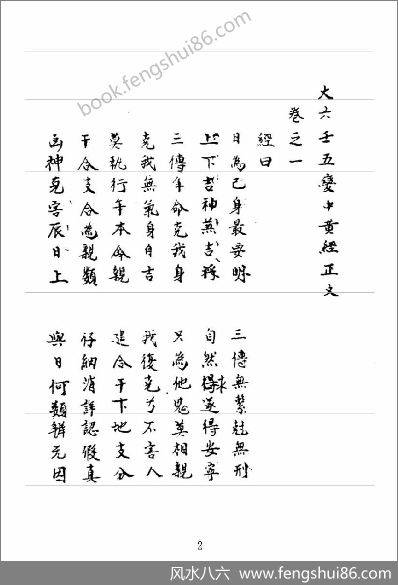 book.fengshui86.com
大六壬五變中黃經正文
卷之一
經曰
日為己身最要明 三傳無尅無刑
上下吉神兼吉 自然得求遂得安寧
三傳年命克我身 只為他鬼莫相親
克我無氣身自吉 我復克不害人
莫執行年本命親 合干下地支分
干合支合為親類 仔細消詳認假真
凶神克害辰日上 與日何類辨元因
2
风水八六 www.fengshui86.com